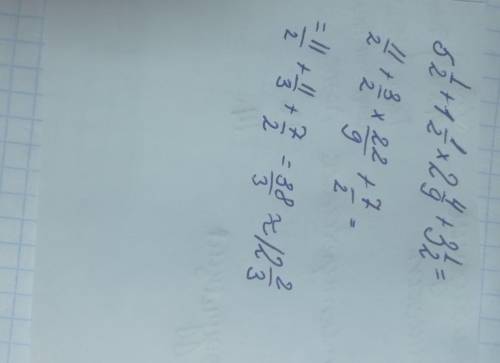 5 1/2 + 1 1/2 × 2 4/9 + 3 1/2 =
11/2 + 3/2 × 22/9 + 7/2 =
= 11/2 + 11/3 + 7/2 = 38/3 ≈ 12 2/3